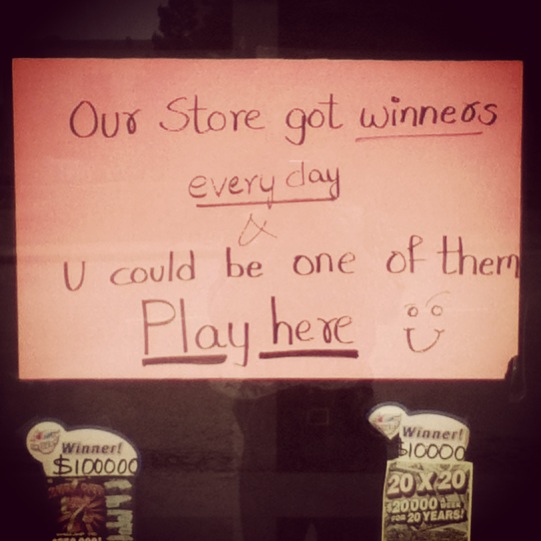 Our Store got winners
every day
&
U could be one of them
Play here
Winner!
$100000
Winner!
$10000
20 X 20
$20000 A WEEK
FOR 20 YEARS!